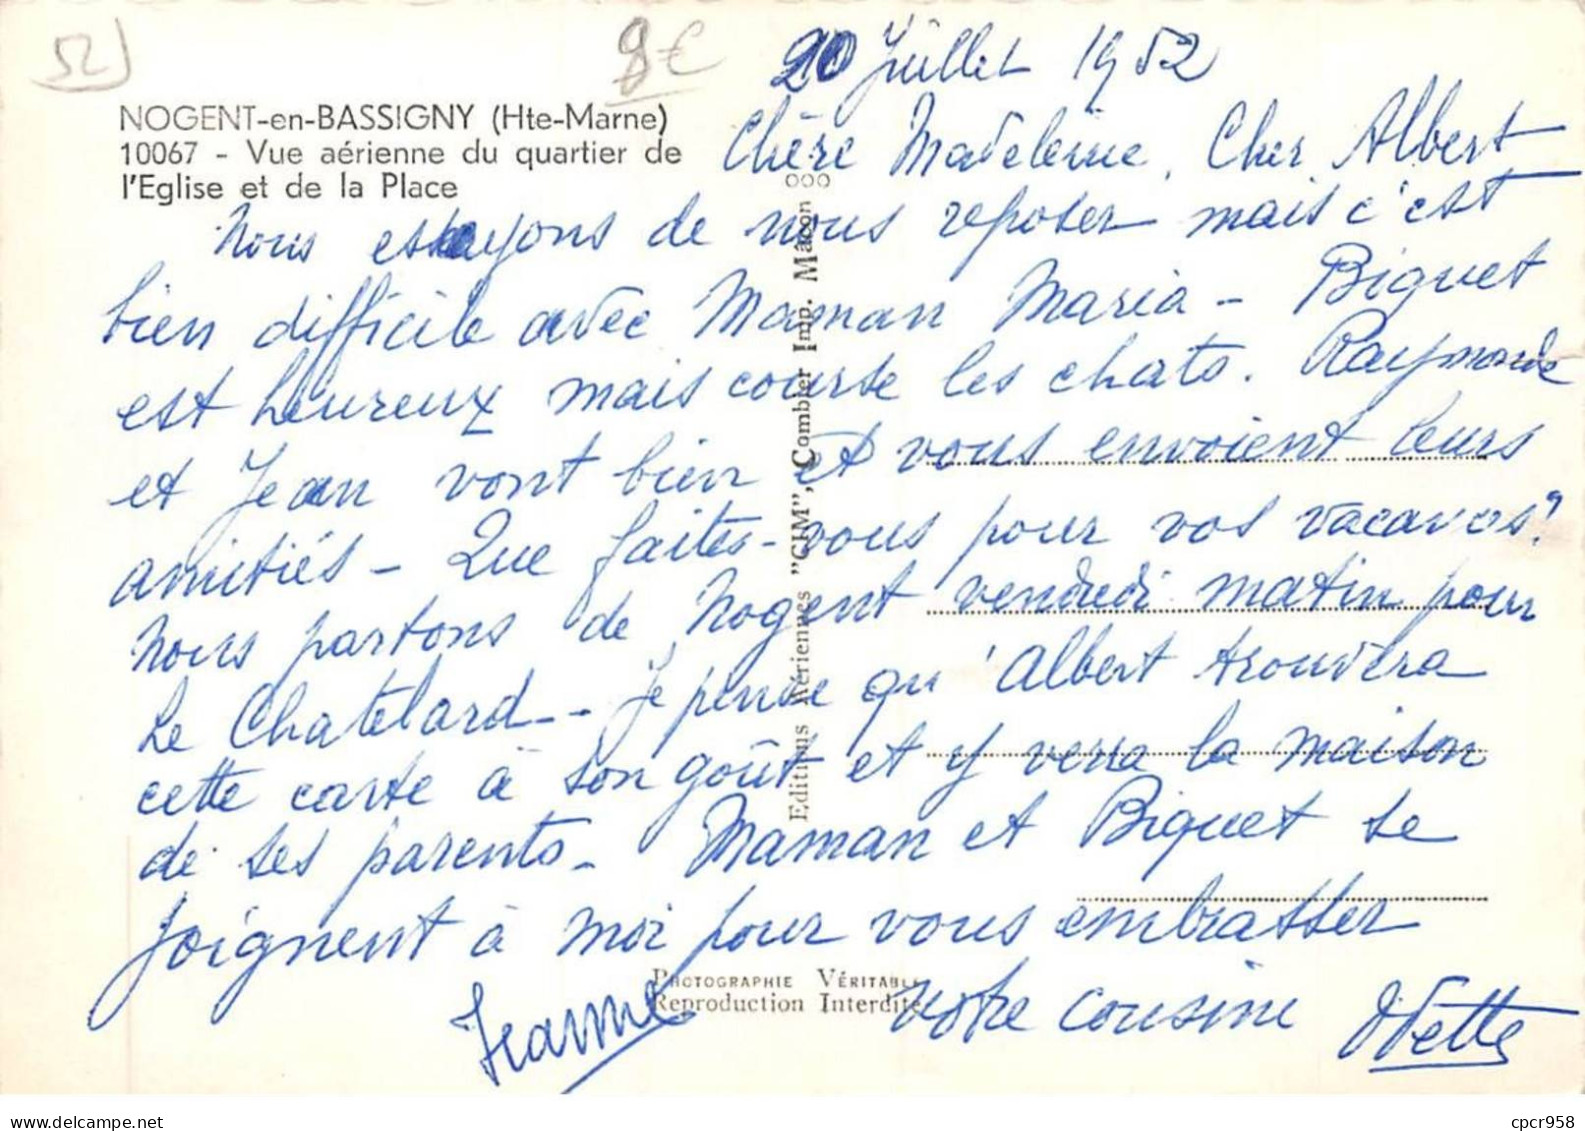 52
8€
20 Juillet 1952
NOGENT-en-BASSIGNY (Hte-Marne)
10067 - Vue aérienne du quartier de
l'Eglise et de la Place
Chère Madeleine, Cher Albert
Nous essayons de nous reposer mais c'est
bien difficile avec Maman Maria - Biquet
est heureux mais course les chats. Raymonde
et Jean vont bien et vous envoient leurs
amitiés - Que faites-vous pour vos vacances?
Nous partons de Nogent vendredi matin pour
Le Chatelard -- Je pense qu'Albert trouvera
cette carte à son goût et y verra la maison
de ses parents - Maman et Biquet se
joignent à moi pour vous embrasser
votre cousine Odette
Jeanne
Editions Aériennes "CIM", Combier Imp. Mâcon
PHOTOGRAPHIE VÉRITABLE
Reproduction Interdite
www.delcampe.net
cpcr958